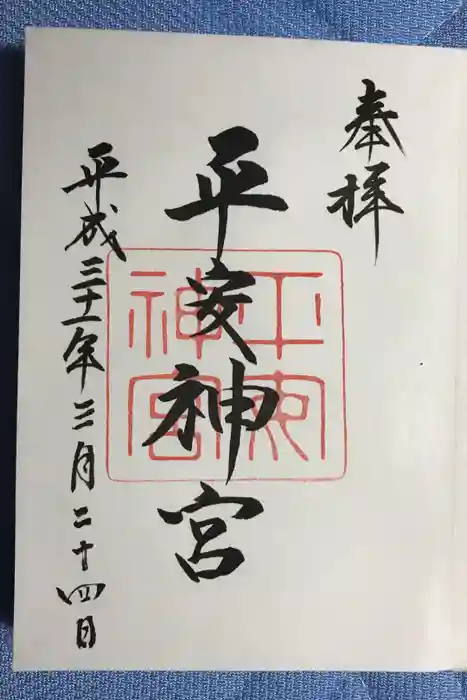 奉拝
平安神宮
平安神宮
平成三十一年三月二十四日